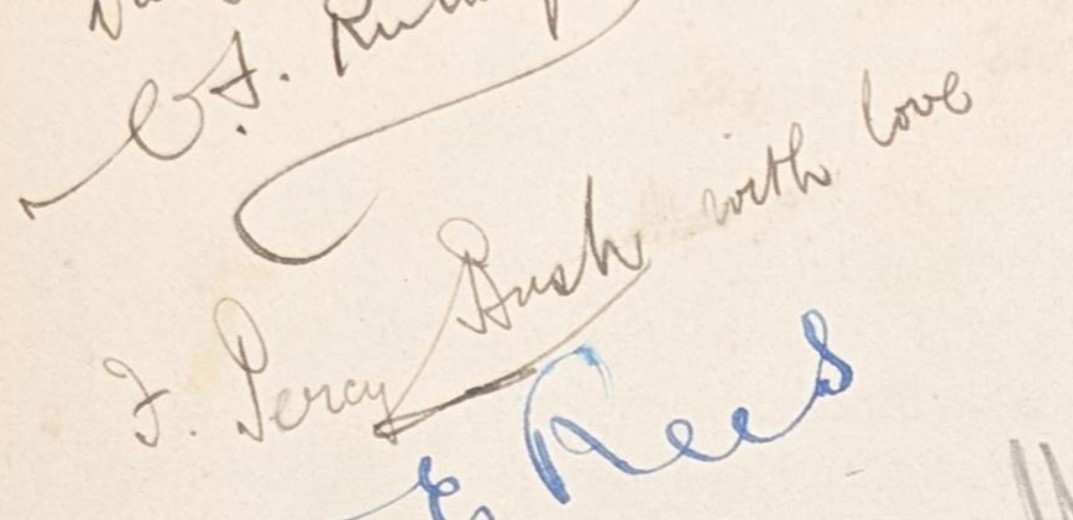 C.J.
F. Percy Bush with love
E Rees